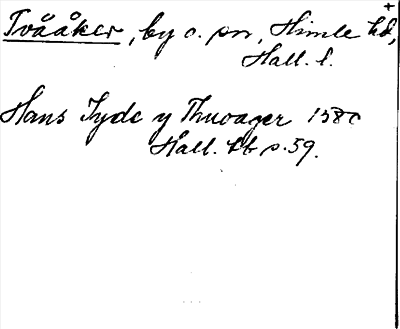 Tvååker, by o. sn, Himle hd,
Hall. l.
Hans Tyde y Thuoager 1580
Hall. hb s. 59.